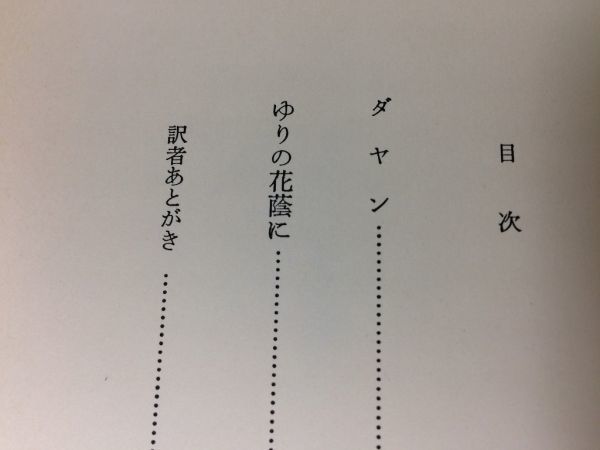 目次
ダヤン
ゆりの花蔭に
訳者あとがき